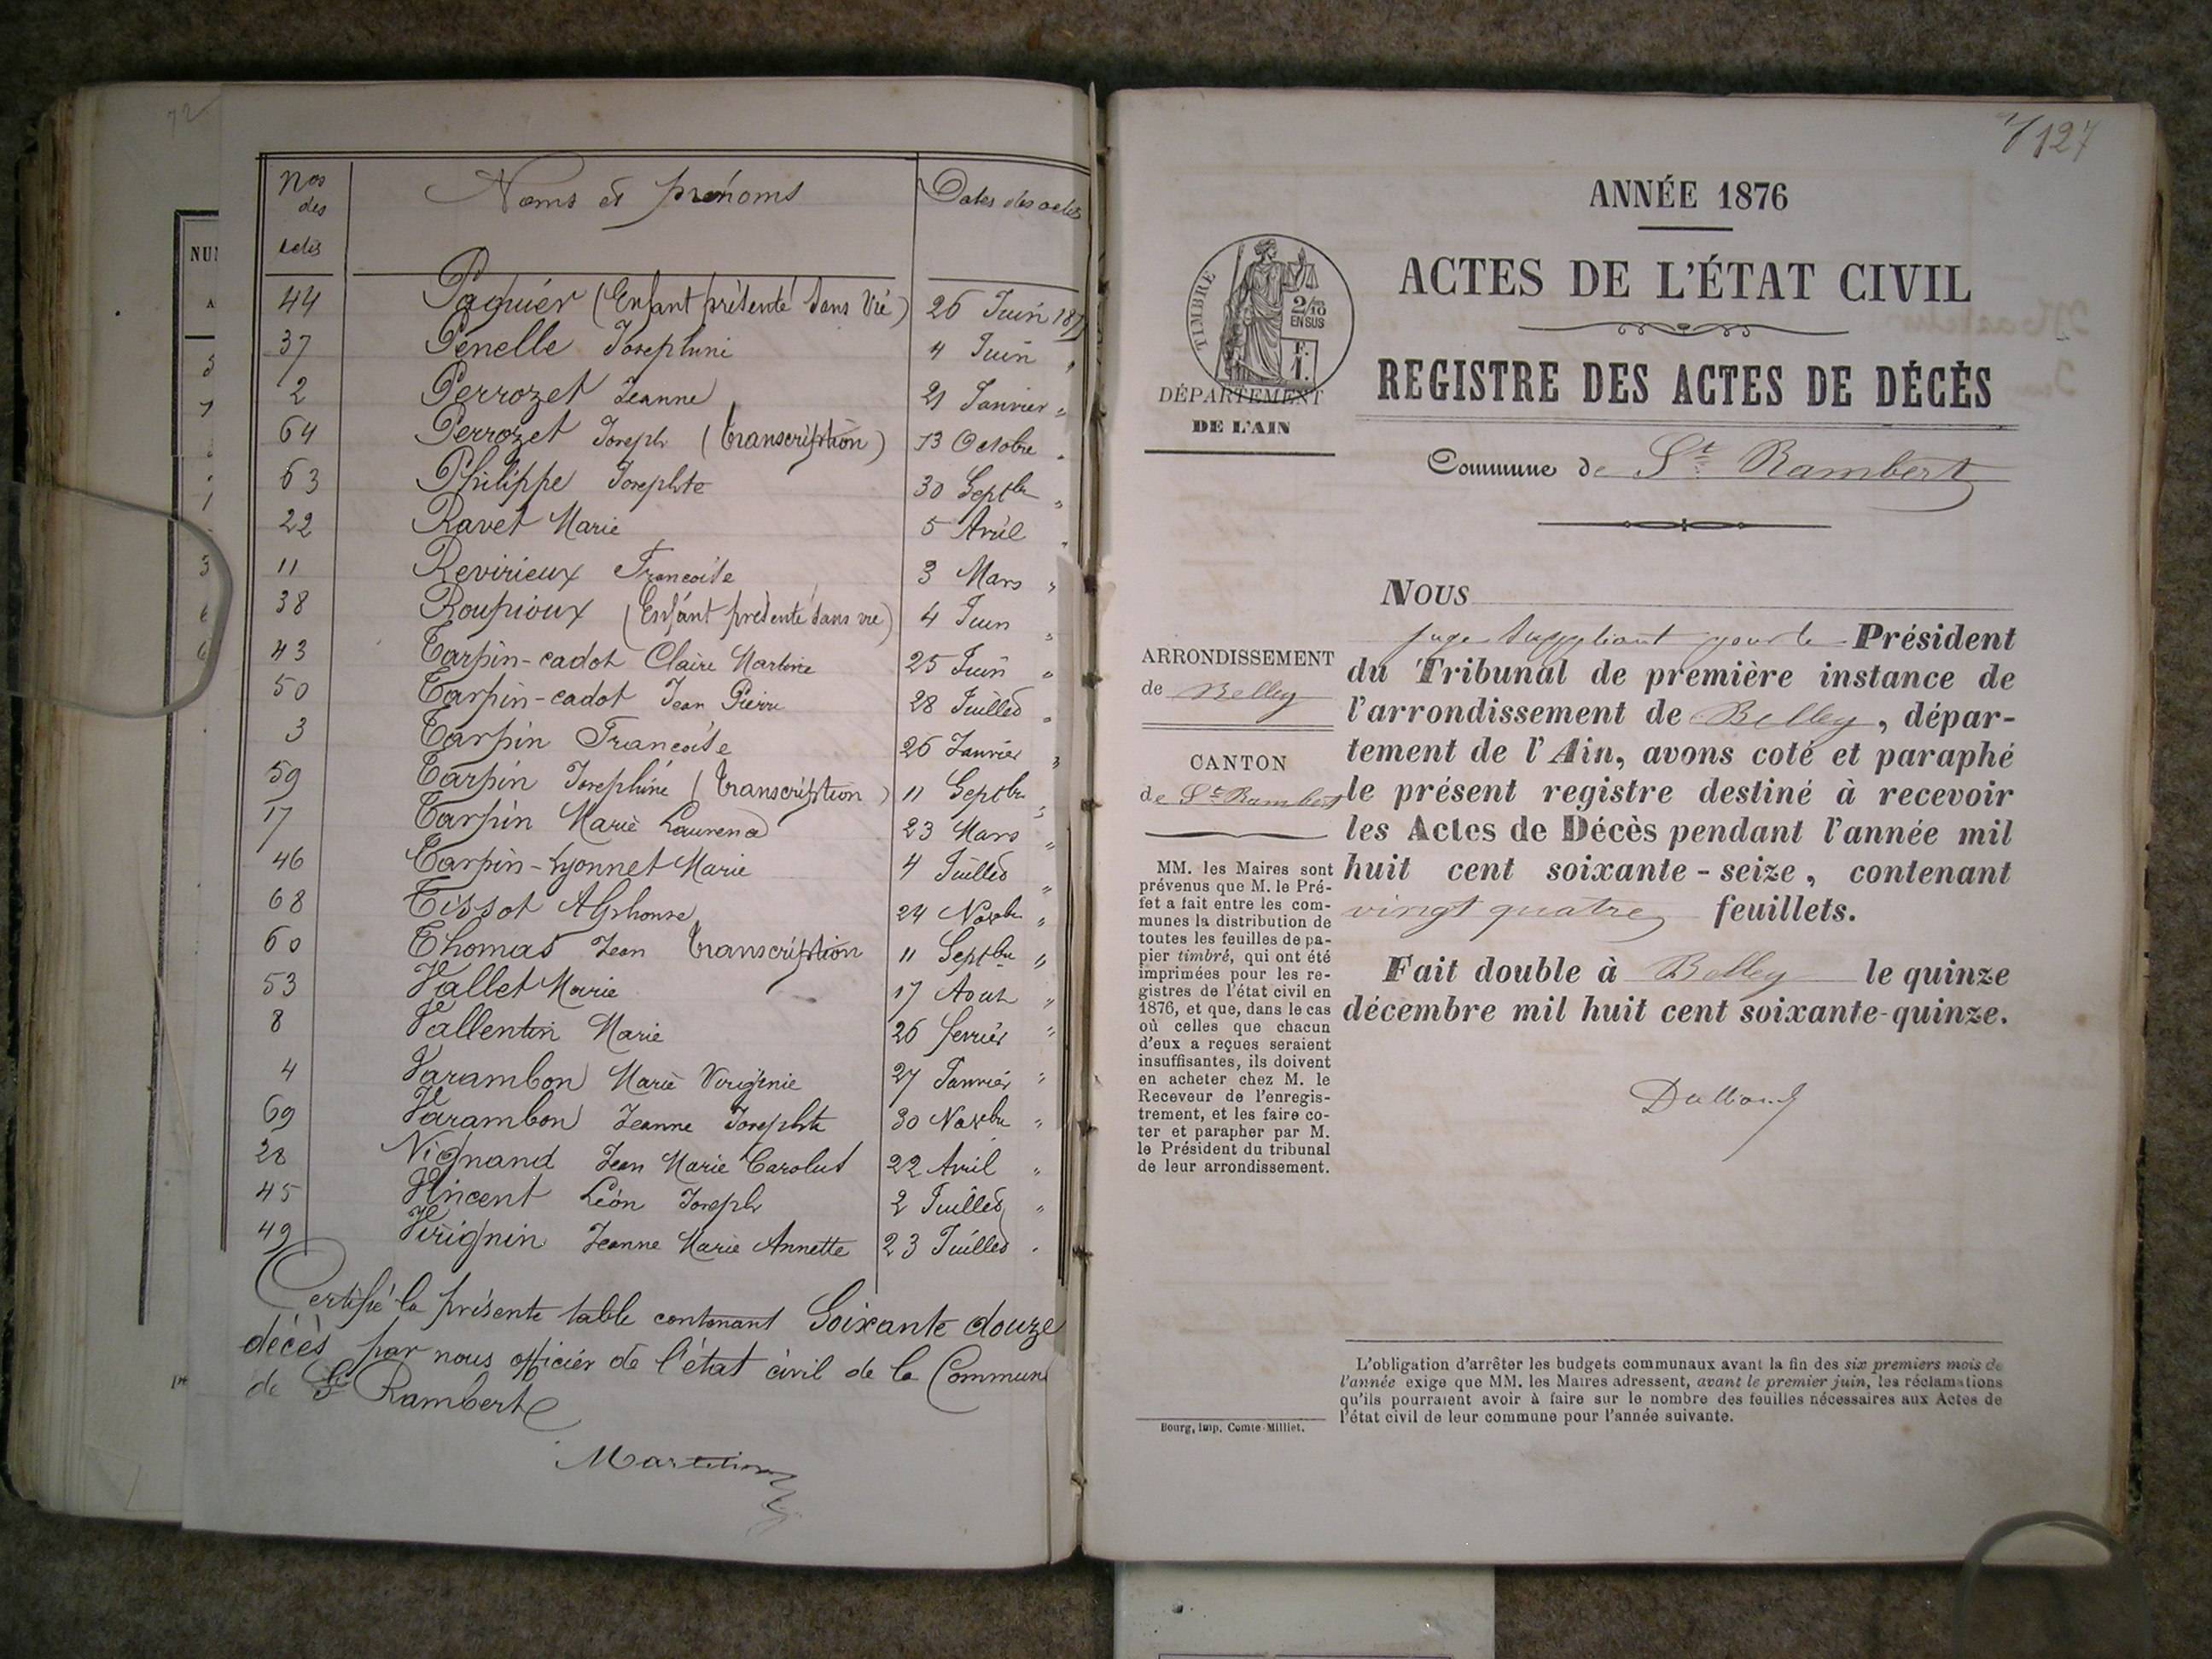 72
Nos des actes
Noms et prénoms
Dates des actes
44 Paquier (Enfant présenté sans Vie) 26 Juin 187
37 Penelle Josephine 4 Juin "
2 Perrozet Jeanne 21 Janvier "
64 Perrozet Joseph (transcription) 13 Octobre "
63 Philippe Josephte 30 Septbre "
22 Ravet Marie 5 Avril "
11 Revirieux Francoise 3 Mars "
38 Roupioux (Enfant présenté sans vie) 4 Juin "
43 Tarpin-cadot Claire Martine 25 Juin "
50 Tarpin-cadot Jean Pierre 28 Juillet "
3 Tarpin Francoise 26 Janvier "
59 Tarpin Josephine (transcription) 11 Septbre "
17 Tarpin Marie Laurence 23 Mars "
46 Tarpin-Lyonnet Marie 4 Juillet "
68 Tissot Alphonse 24 Novbre "
60 Thomas Jean transcription 11 Septbre "
53 Vallet Marie 17 Aout "
8 Vallentin Marie 26 fevrier "
4 Varambon Marie Virginie 27 Janvier "
69 Varambon Jeanne Josephte 30 Novbre "
28 Vignand Jean Marie Carolus 22 Avril "
45 Vincent Léon Joseph 2 Juillet "
49 Virignin Jeanne Marie Annette 23 Juillet "
Certifié la présente table contenant Soixante douze
décès par nous officier de l'état civil de la Commune
de St Rambert
127
ANNÉE 1876
ACTES DE L'ÉTAT CIVIL
REGISTRE DES ACTES DE DÉCÈS
Commune de St Rambert
TIMBRE
2/10
EN SUS
F.
1.
DÉPARTEMENT
DE L'AIN
ARRONDISSEMENT
de Belley
CANTON
de St Rambert
MM. les Maires sont
prévenus que M. le Pré-
fet a fait entre les com-
munes la distribution de
toutes les feuilles de pa-
pier timbré, qui ont été
imprimées pour les re-
gistres de l'état civil en
1876, et que, dans le cas
où celles que chacun
d'eux a reçues seraient
insuffisantes, ils doivent
en acheter chez M. le
Receveur de l'enregis-
trement, et les faire co-
ter et parapher par M.
le Président du tribunal
de leur arrondissement.
Bourg, imp. Comte-Milliet.
NOUS
juge suppléant pour le Président
du Tribunal de première instance de
l'arrondissement de Belley, dépar-
tement de l'Ain, avons coté et paraphé
le présent registre destiné à recevoir
les Actes de Décès pendant l'année mil
huit cent soixante-seize, contenant
vingt quatre feuillets.
Fait double à Belley le quinze
décembre mil huit cent soixante-quinze.
L'obligation d'arrêter les budgets communaux avant la fin des six premiers mois de
l'année exige que MM. les Maires adressent, avant le premier juin, les réclamations
qu'ils pourraient avoir à faire sur le nombre des feuilles nécessaires aux Actes de
l'état civil de leur commune pour l'année suivante.